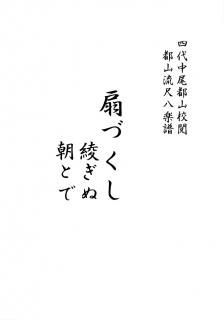 四代中尾都山校閲
都山流尺八楽譜
扇づくし
綾ぎぬ
朝とで